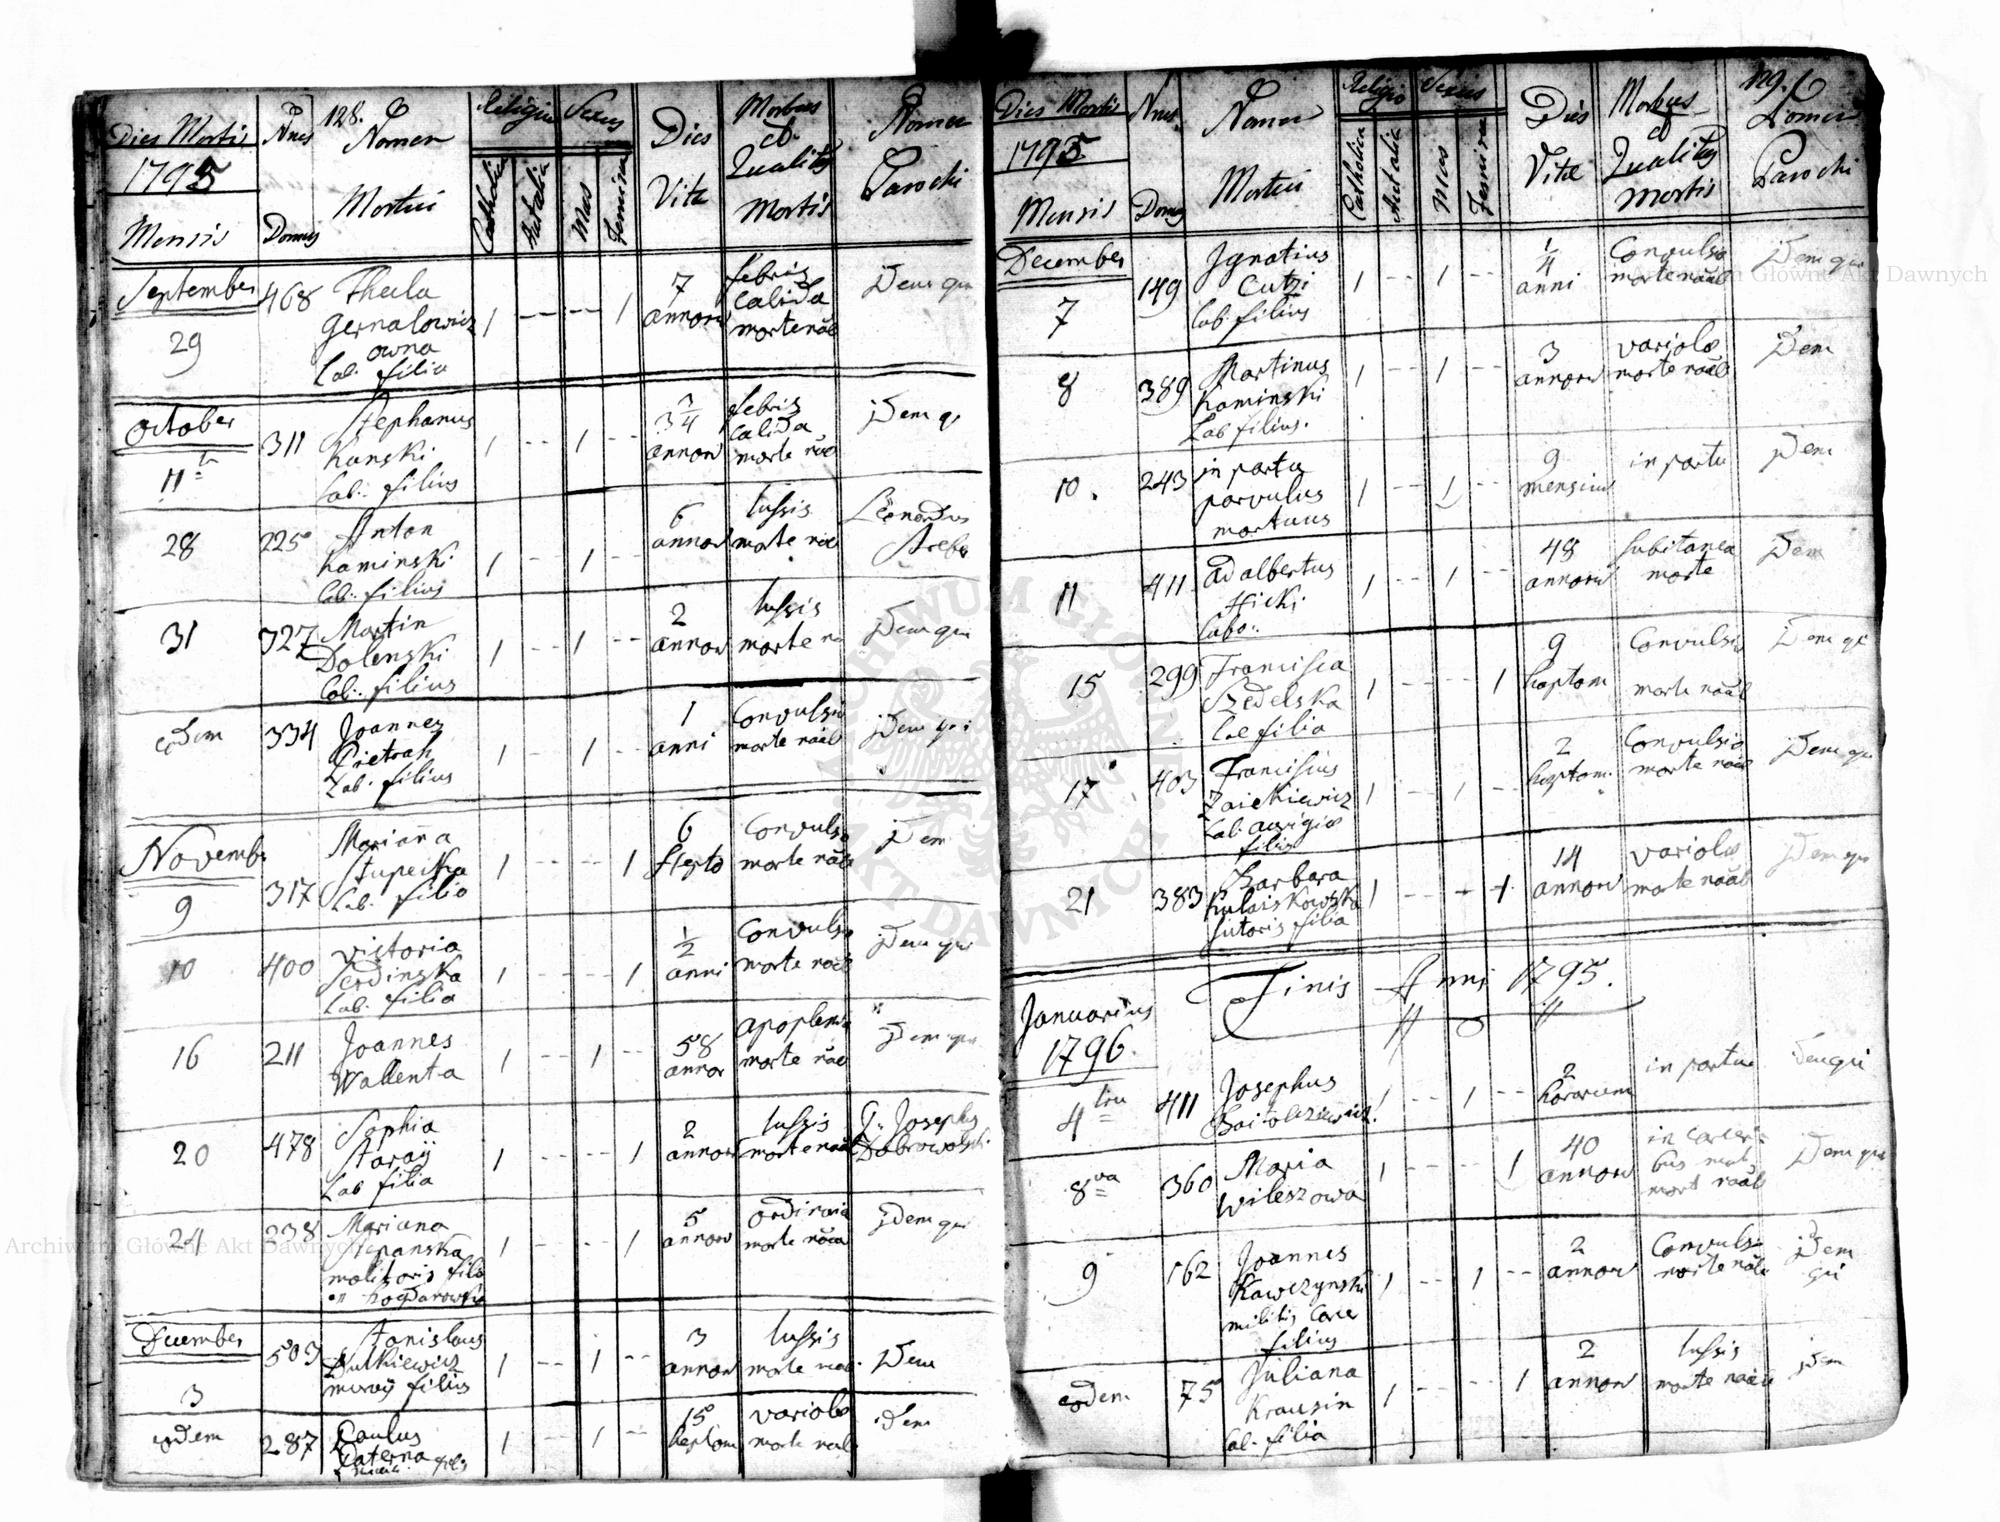 128.
Dies Mortis
1795
Mensis
Nrus
Domus
Nomen
Mortui
Religio
Catholica
Autalia
Sexus
Mas
Femina
Dies
Vitæ
Morbus
et
Qualitas
Mortis
Nomen
Parochi
September
29
468
Thecla
Gernatowicz
owna
Lab. filia
1
1
7
annorū
febris
calida
morte nāāl
Dem qui
October
11
311
Stephanus
Kanski
Lab. filius
1
1
3/4
annorū
febris
calida
morte nāāl
Idem q
28
225
Anton
Kaminski
Lab. filius
1
1
6
annorū
tussis
morte nāāl
Leonardus
31
327
Martin
Dolenski
Lab. filius
1
1
2
annorū
tussis
morte n
Idem qui
eodem
334
Joannes
Pietrah
Lab. filius
1
1
1
anni
Convulsio
morte nāāl
Idem qui
Novembr
9
317
Marianna
Stupecka
Lab. filia
1
1
6
Convulsio
morte nāāl
Idem
10
400
Victoria
Serdinska
Lab. filia
1
1
1/2
anni
Convulsio
morte nāāl
Idem qui
16
211
Joannes
Wallenta
1
1
58
annor
apoplexia
morte nāāl
Idem qui
20
478
Sophia
Staraÿ
Lab filia
1
1
2
annorū
tussis
morte nāāl
Josephus
Dabrowolski
24
238
Mariana
Stepanska
molitoris filia
1
1
5
annorū
ordinaria
morte nāāl
Idem qui
December
3
503
Stanislaus
Dutkiewicz
filius
1
1
3
annorū
tussis
morte nāāl
Idem
eodem
287
Paulus
Paterna
1
1
15
heptom
variolæ
morte nāāl
Idem
129.
Dies Mortis
1795
Mensis
Nrus
Domus
Nomen
Mortui
Religio
Catholica
Autalia
Sexus
Mas
Femina
Dies
Vitæ
Morbus
et
Qualitas
Mortis
Nomen
Parochi
December
7
149
Ignatius
Cutzi
Lab. filius
1
1
1/4
anni
Convulsio
morte nāāl
Idem qui
8
389
Martinus
Kaminski
Lab filius.
1
1
3
annorū
variolæ
morte nāāl
Idem
10.
243
in partu
parvulus
mortuus
1
1
9
mensium
in partu
Idem
11
411
Adalbertus
Hicki
Labo.
1
1
48
annorū
subitanea
morte
Idem
15
299
Francisca
Szedelska
filia
1
1
9
heptom
Convulsio
morte nāāl
Idem qi
17
403
Franciscus
Zaickiewicz
Lab. aurigæ
filius
1
1
2
heptom.
Convulsio
morte nāāl
Idem qui
21
383
Barbara
sutoris filia
1
1
14
annorū
variolæ
morte nāāl
Idem qui
Finis Anni 1795.
Januarius
1796.
4
411
Josephus
1
1
2
horarum
in partu
Idem qui
8va
360
Maria
Wileszowa
1
1
40
annorū
in carceri
bus
mort nāāl
Idem qui
9
162
Joannes
Kawczynski
militis
filius
1
1
2
annorū
Convulsi
morte nāāl
Idem
qui
eodem
75
Juliana
Krausin
Lab. filia
1
1
2
annorū
tussis
morte nāāl
Idem
Archiwum Główne Akt Dawnych
Archiwum Główne Akt Dawnych
ARCHIWUM GŁÓWNE AKT DAWNYCH